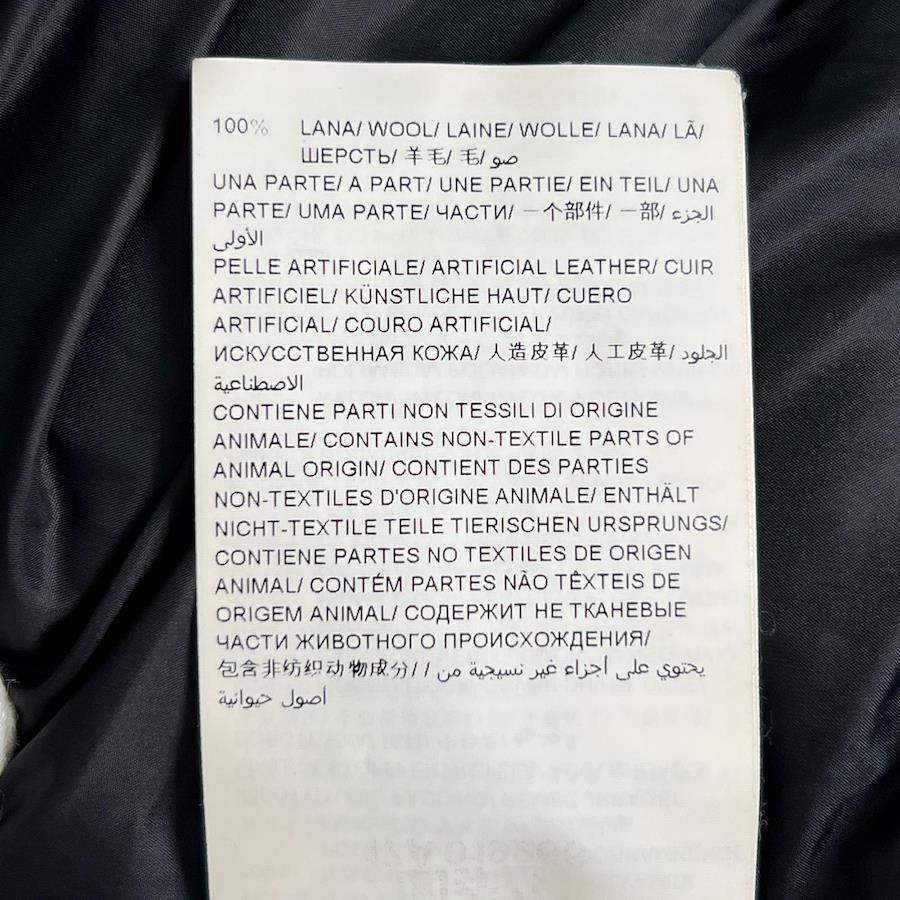 100% LANA/ WOOL/ LAINE/ WOLLE/ LANA/ LÃ/
ШЕРСТЬ/ 羊毛/ 毛/ صو
UNA PARTE/ A PART/ UNE PARTIE/ EIN TEIL/ UNA
PARTE/ UMA PARTE/ ЧАСТИ/ 一个部件/ 一部/ الجزء
الأولى
PELLE ARTIFICIALE/ ARTIFICIAL LEATHER/ CUIR
ARTIFICIEL/ KÜNSTLICHE HAUT/ CUERO
ARTIFICIAL/ COURO ARTIFICIAL/
ИСКУССТВЕННАЯ КОЖА/ 人造皮革/ 人工皮革/ الجلود
الاصطناعية
CONTIENE PARTI NON TESSILI DI ORIGINE
ANIMALE/ CONTAINS NON-TEXTILE PARTS OF
ANIMAL ORIGIN/ CONTIENT DES PARTIES
NON-TEXTILES D'ORIGINE ANIMALE/ ENTHÄLT
NICHT-TEXTILE TEILE TIERISCHEN URSPRUNGS/
CONTIENE PARTES NO TEXTILES DE ORIGEN
ANIMAL/ CONTÉM PARTES NÃO TÊXTEIS DE
ORIGEM ANIMAL/ СОДЕРЖИТ НЕ ТКАНЕВЫЕ
ЧАСТИ ЖИВОТНОГО ПРОИСХОЖДЕНИЯ/
包含非纺织动物成分/ / يحتوي على أجزاء غير نسيجية من
أصول حيوانية